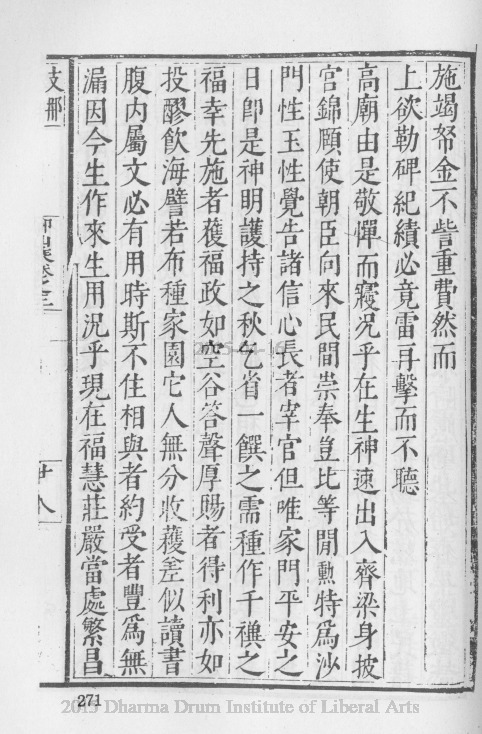 施竭帑金不訾重費然而
上欲勒碑紀績必竟雷再擊而不聽
高廟由是敬憚而寢况乎在生神速出入齊梁身披
宮錦願使朝臣向來民間崇奉豈比等閒勳特爲沙
門性玉性覺告諸信心長者宰官但唯家門平安之
日卽是神明護持之秋乞省一饌之需種作千禩之
福幸先施者獲福政如空谷答聲厚賜者得利亦如
投醪飲海譬若布種家園它人無分收穫差似讀書
腹內屬文必有用時斯不住相與者約受者豐爲無
漏因今生作來生用況乎現在福慧莊嚴當處繁昌
支那
廿八
271
2015 Dharma Drum Institute of Liberal Arts